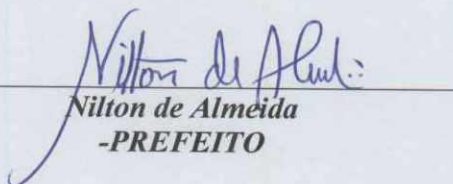 Nilton de Almeida
Nilton de Almeida
-PREFEITO